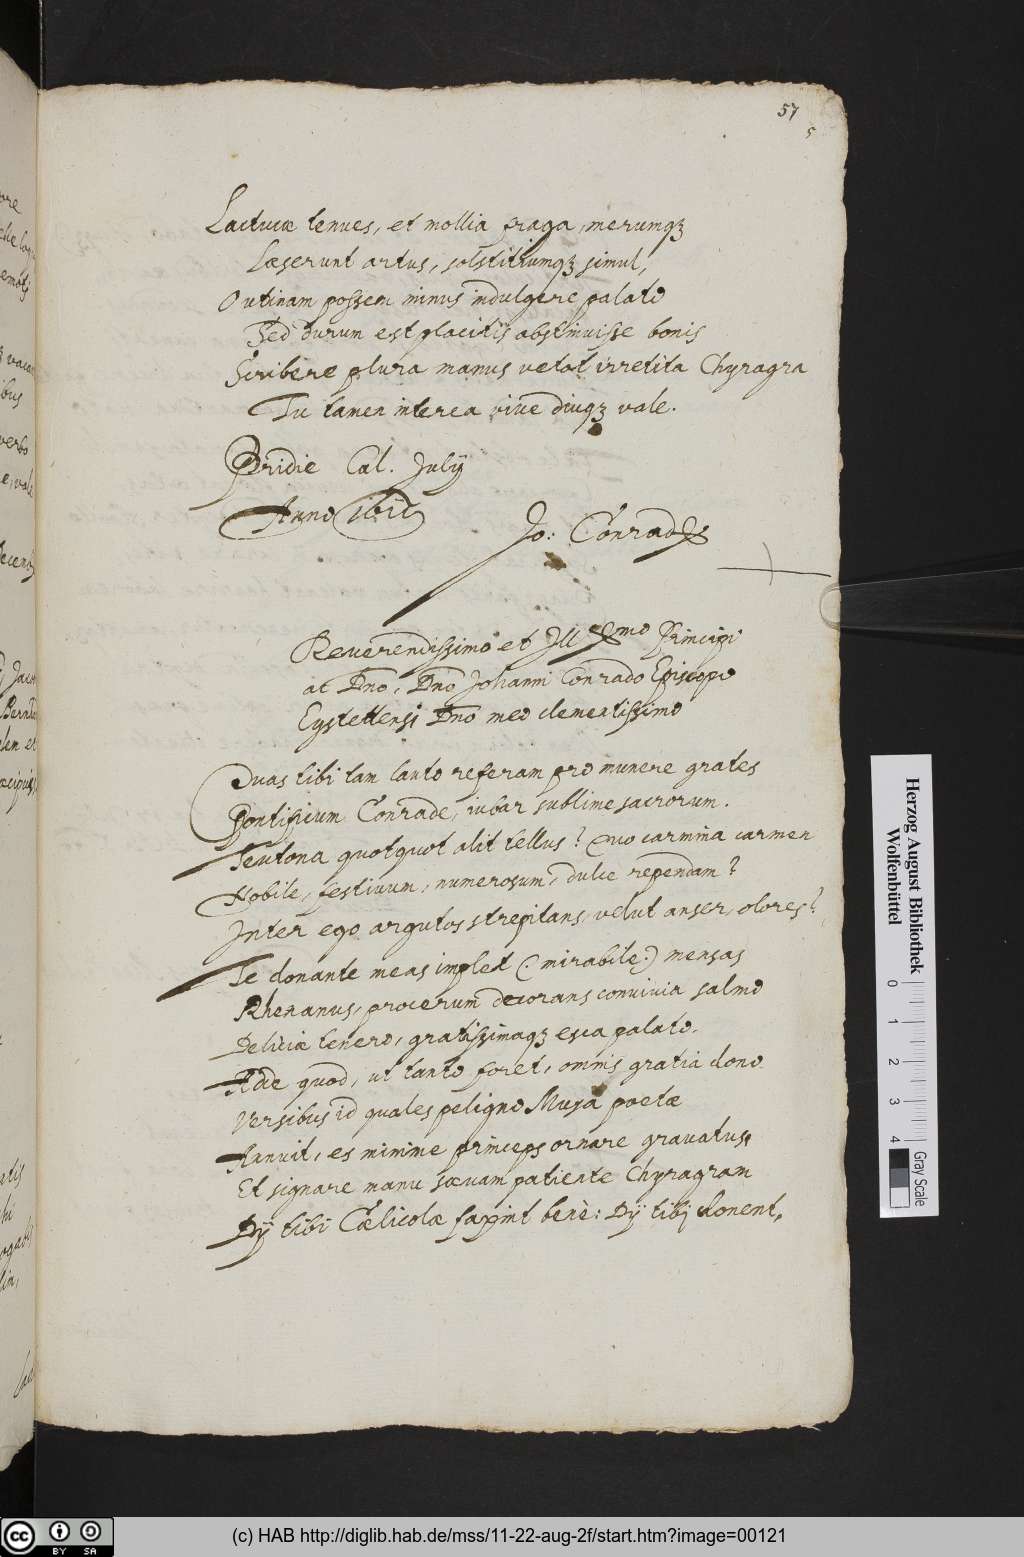 57
5
Lactucæ tenues, et mollia fraga, merumqꝫ
Læserunt artus, solstitiumqꝫ simul,
O utinam possem minus indulgere palato
Sed durum est placitis abstinuisse bonis
Scribere plura manus vetat irretita Chyragra
Tu tamen interea vive diuqꝫ vale.
Pridie Cal. Julij
Anno
Jo: Conrad
Reverendissimo et Ill mo Principi
ac Dno, Dno Johanni Conrado Episcopo
Eystettensi Dno meo clementissimo
Quas tibi tam lauto referam pro munere grates
Pontificum Conrade, iubar sublime sacrorum.
Teutona quotquot alit tellus? Quo carmina carmen
Nobile, festivum, numerosum, dulce rependam?
Inter ego argutos strepitans, velut anser, olores?
Te donante meas implet (: mirabile:) mensas
Rhenanus, procerum decorans convivia salmo
Deliciæ tenero, gratissimaqꝫ esca palato.
Adde quod, ut tanto foret, omnis gratia dono
Versibus id quales peligno Musa poetæ
Annuit, es minime princeps ornare gravatus,
Et signare manu sævam patiente Chyragram
Dij tibi Cœlicolæ faxint benè: Dij tibj donent,
Herzog August Bibliothek
Wolfenbüttel
0 1 2 3 4
Gray Scale
cc BY SA
(c) HAB http://diglib.hab.de/mss/11-22-aug-2f/start.htm?image=00121